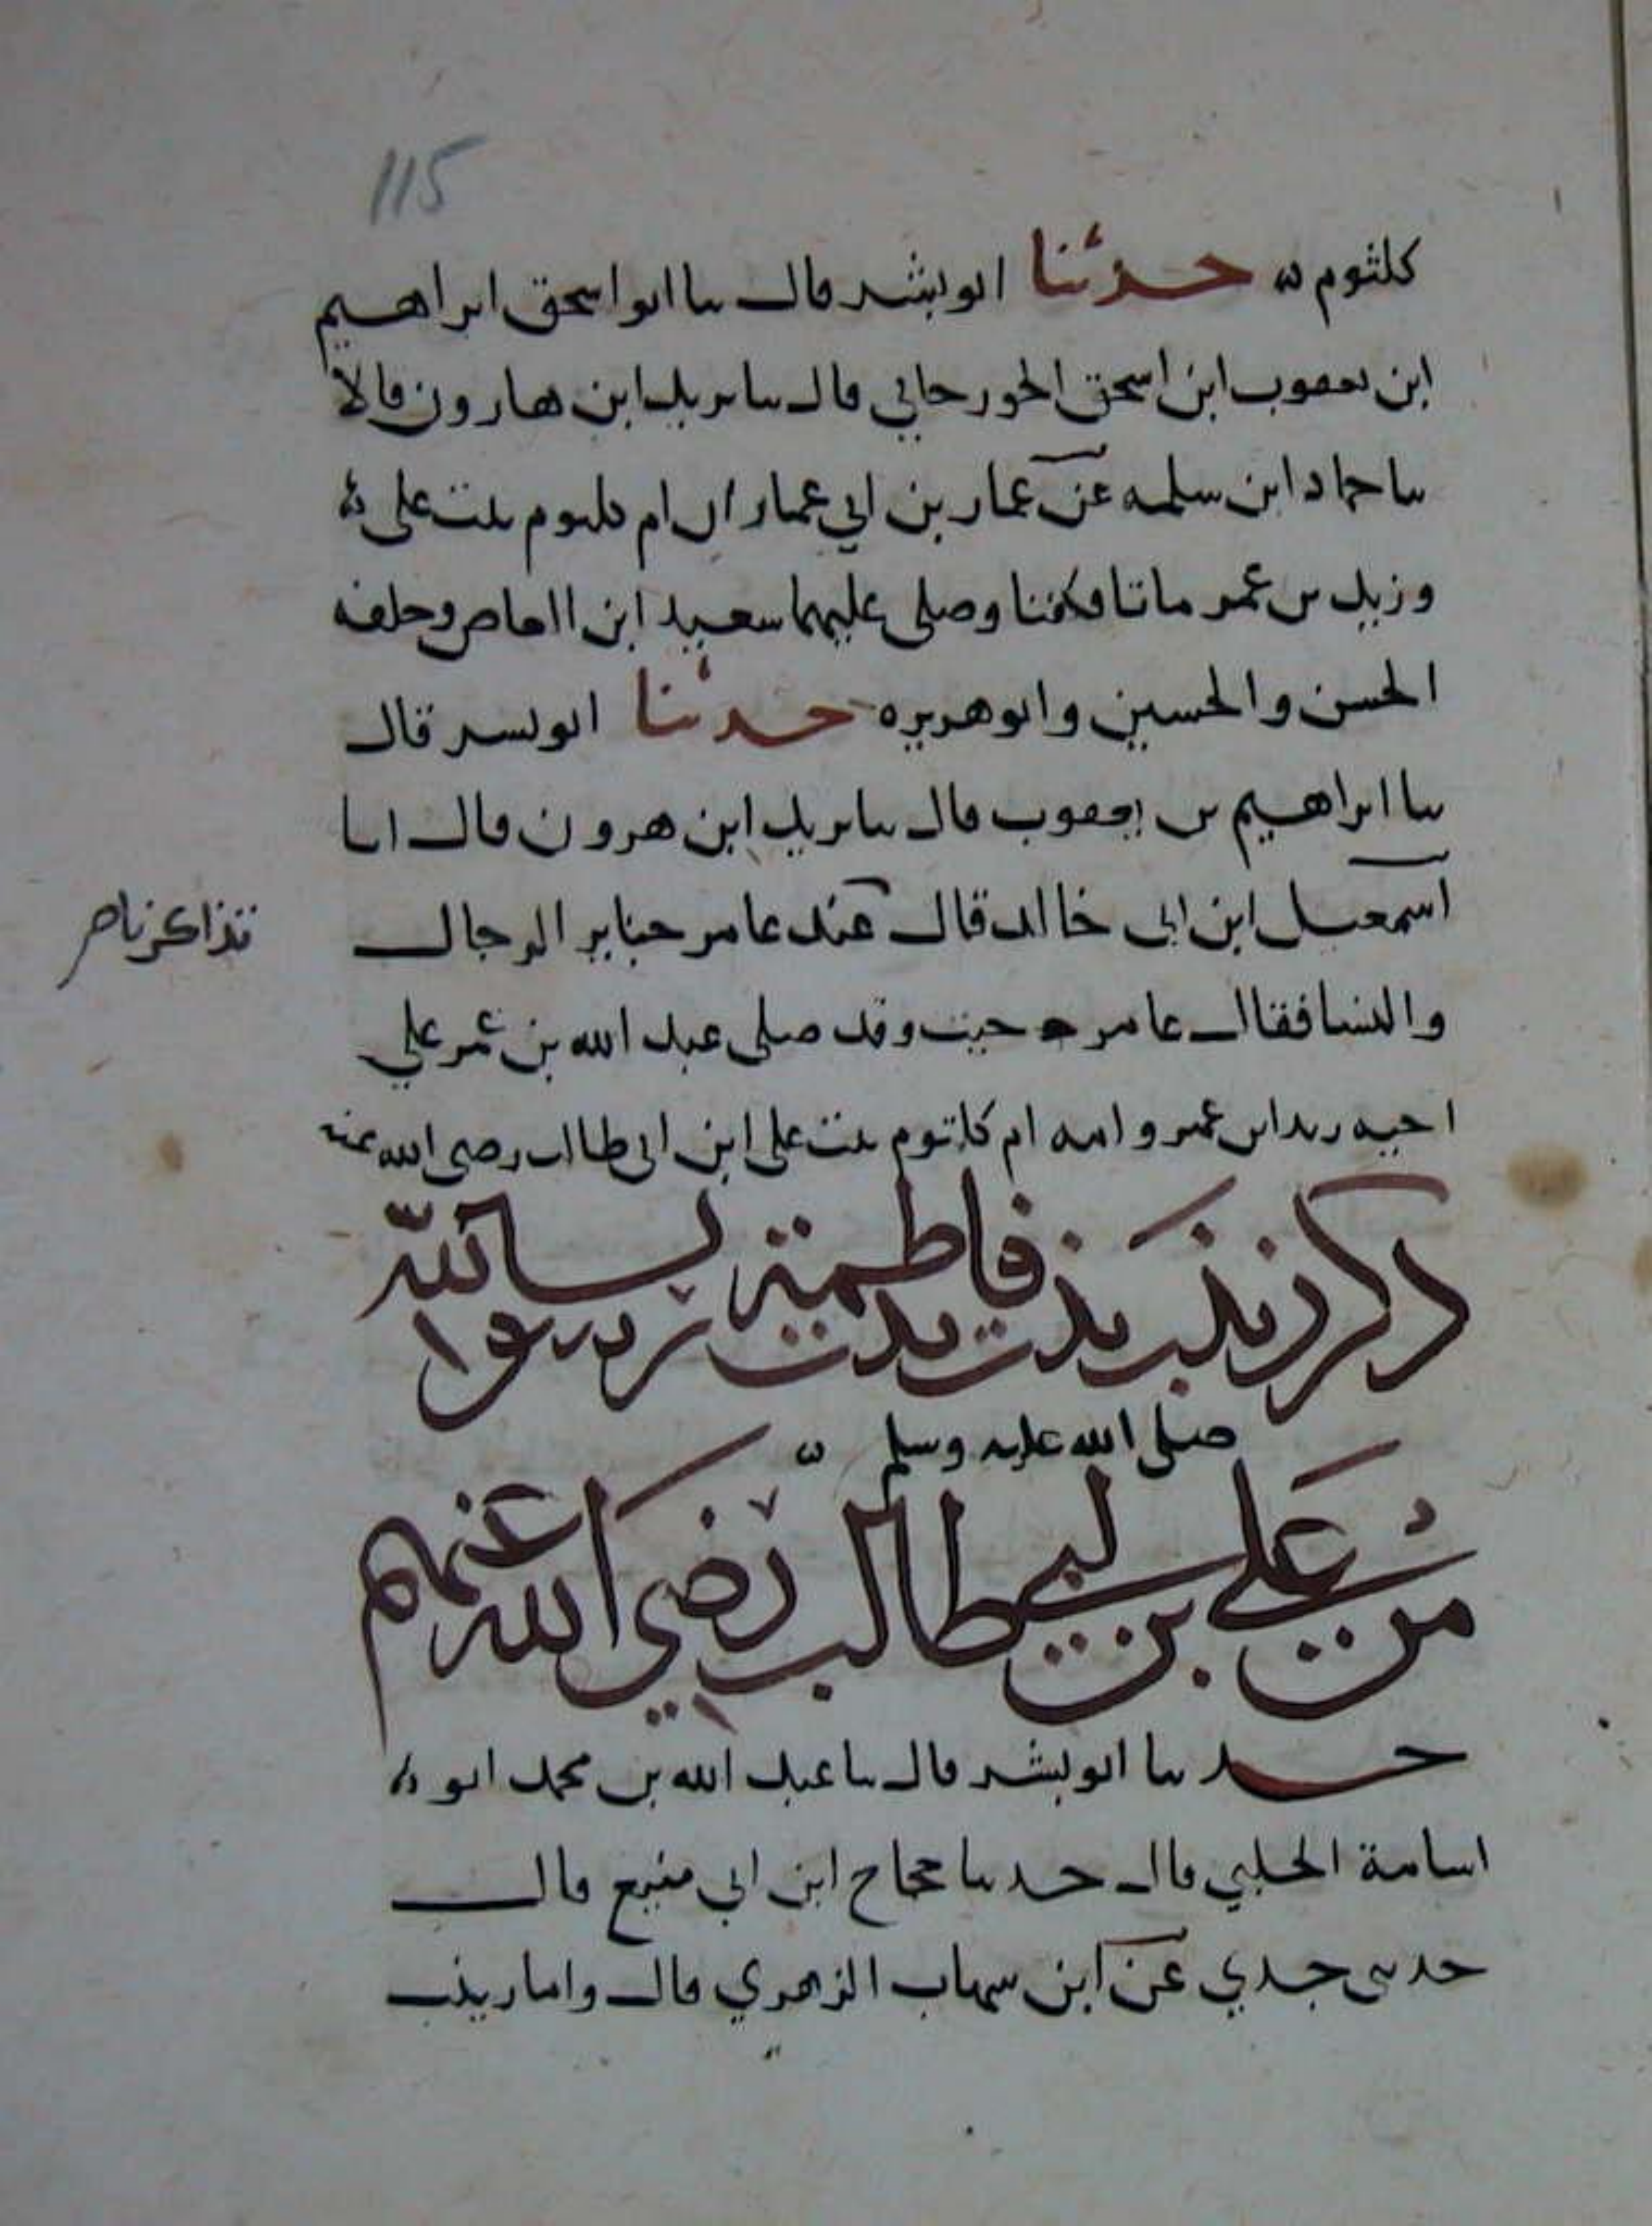 115
كلثوم حدثنا ابو بشر قال نا ابو اسحق ابراهيم
ابن يعقوب ابن اسحق الجوزجاني قال نا يزيد ابن هارون قالا
نا حماد ابن سلمه عن عمار بن ابي عمار ان ام كلثوم بنت علي
وزيد بن عمر ماتا فكفنا وصلى عليهما سعيد ابن العاص وخلفه
الحسن والحسين وابو هريره حدثنا ابو بشر قال
نا ابراهيم بن يعقوب قال نا يزيد ابن هرون قال انا
اسمعيل ابن ابي خالد قال عند عامر جنايز الرجال
تذاكرنا
والنسا فقال عامر جيت وقد صلى عبد الله بن عمر علي
اخيه زيد ابن عمر وامه ام كلثوم بنت علي ابن ابي طالب رضي الله عنه
ذكر زينب بنت فاطمة بنت رسول الله
صلى الله عليه وسلم
من علي بن ابي طالب رضي الله عنهم
حدثنا ابو بشر قال نا عبد الله بن محمد ابو
اسامة الحلبي قال حدثنا حجاج ابن ابي منيع قال
حدثني جدي عن ابن شهاب الزهري قال واما زينب